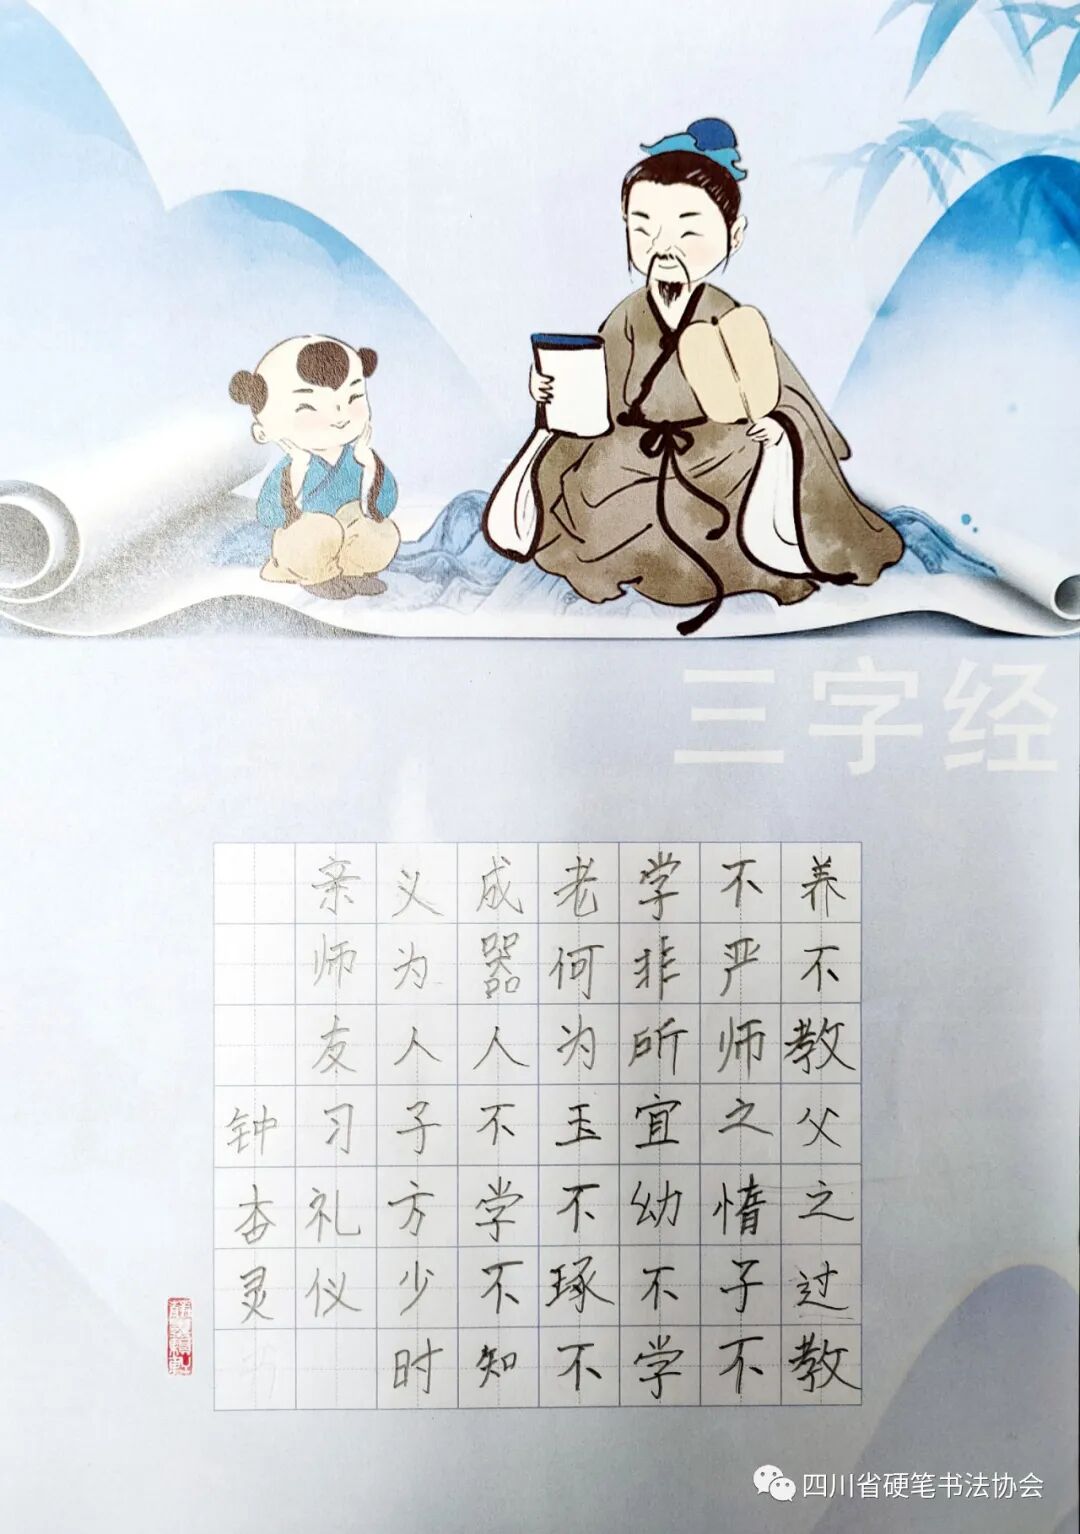 三字经
养不教父之过教
不严师之惰子不
学非所宜幼不学
老何为玉不琢不
成器人不学不知
义为人子方少时
亲师友习礼仪
钟杏灵书
四川省硬笔书法协会